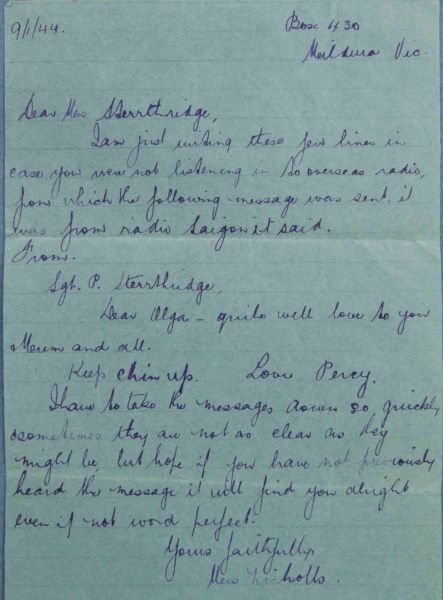 9/1/44.
Box 430
Mildura Vic.
Dear Mrs Sterrthridge,
I am just writing these few lines in
case you were not listening in to overseas radio,
from which the following message was sent, it
was from radio Saigon it said.
From.
Sgt. P. Sterrthridge,
Dear Olga – quite well love to you
Mum and all.
Keep chin up. Love Percy.
I have to take the messages down so, quickly
sometimes they are not as clear as they
might be, but hope if you have not previously
heard the message it will find you alright
even if not word perfect.
Yours faithfully,
Mrs Nicholls.